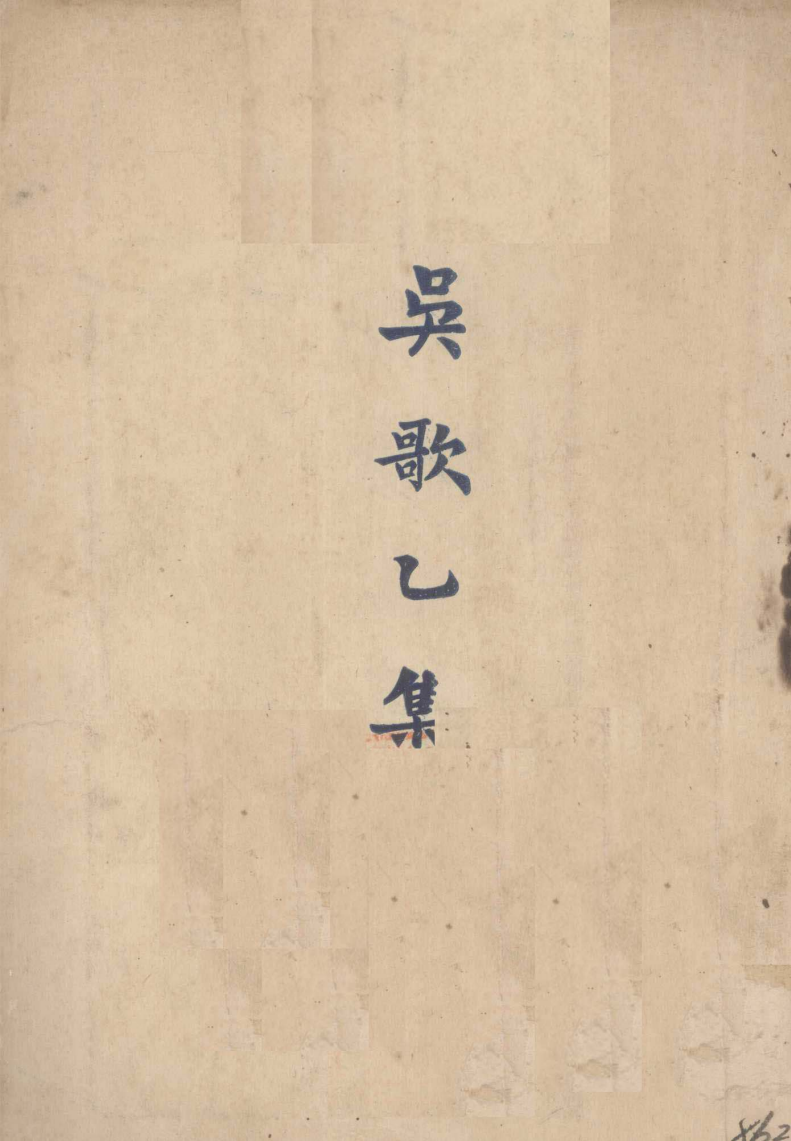 吳歌乙集